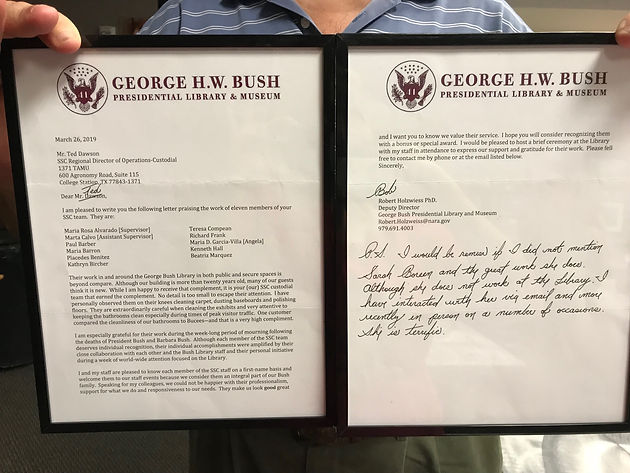 GEORGE H.W. BUSH
PRESIDENTIAL LIBRARY & MUSEUM
March 26, 2019
Mr. Ted Dawson
SSC Regional Director of Operations-Custodial
1371 TAMU
600 Agronomy Road, Suite 115
College Station, TX 77843-1371
Ted
Dear Mr. Dawson,
I am pleased to write you the following letter praising the work of eleven members of your
SSC team. They are:
Maria Rosa Alvarado [Supervisor]
Marta Calvo [Assistant Supervisor]
Paul Barber
Maria Barron
Placedes Benitez
Kathryn Bircher
Teresa Compean
Richard Frank
Maria D. Garcia-Villa [Angela]
Kenneth Hall
Beatriz Marquez
Their work in and around the George Bush Library in both public and secure spaces is
beyond compare. Although our building is more than twenty years old, many of our guests
think it is new. While I am happy to receive that complement, it is your (our) SSC custodial
team that earned the complement. No detail is too small to escape their attention. I have
personally observed them on their knees cleaning carpet, dusting baseboards and polishing
floors. They are extraordinarily careful when cleaning the exhibits and very attentive to
keeping the bathrooms clean especially during times of peak visitor traffic. One customer
compared the cleanliness of our bathrooms to Bucees—and that is a very high compliment.
I am especially grateful for their work during the week-long period of mourning following
the deaths of President Bush and Barbara Bush. Although each member of the SSC team
deserves individual recognition, their individual accomplishments were amplified by their
close collaboration with each other and the Bush Library staff and their personal initiative
during a week of world-wide attention focused on the Library.
I and my staff are pleased to know each member of the SSC staff on a first-name basis and
welcome them to our staff events because we consider them an integral part of our Bush
family. Speaking for my colleagues, we could not be happier with their professionalism,
support for what we do and responsiveness to our needs. They make us look good great
GEORGE H.W. BUSH
PRESIDENTIAL LIBRARY & MUSEUM
and I want you to know we value their service. I hope you will consider recognizing them
with a bonus or special award. I would be pleased to host a brief ceremony at the Library
with my staff in attendance to express our support and gratitude for their work. Please fell
free to contact me by phone or at the email listed below.
Sincerely,
Bob
Robert Holzwiess PhD.
Deputy Director
George Bush Presidential Library and Museum
Robert.Holzweiss@nara.gov
979.691.4003
P.S. I would be remiss if I did not mention
Sarah Boreen and the great work she does.
Although she does not work at the Library, I
have interacted with her via email and more
recently in person on a number of occasions.
She is terrific.